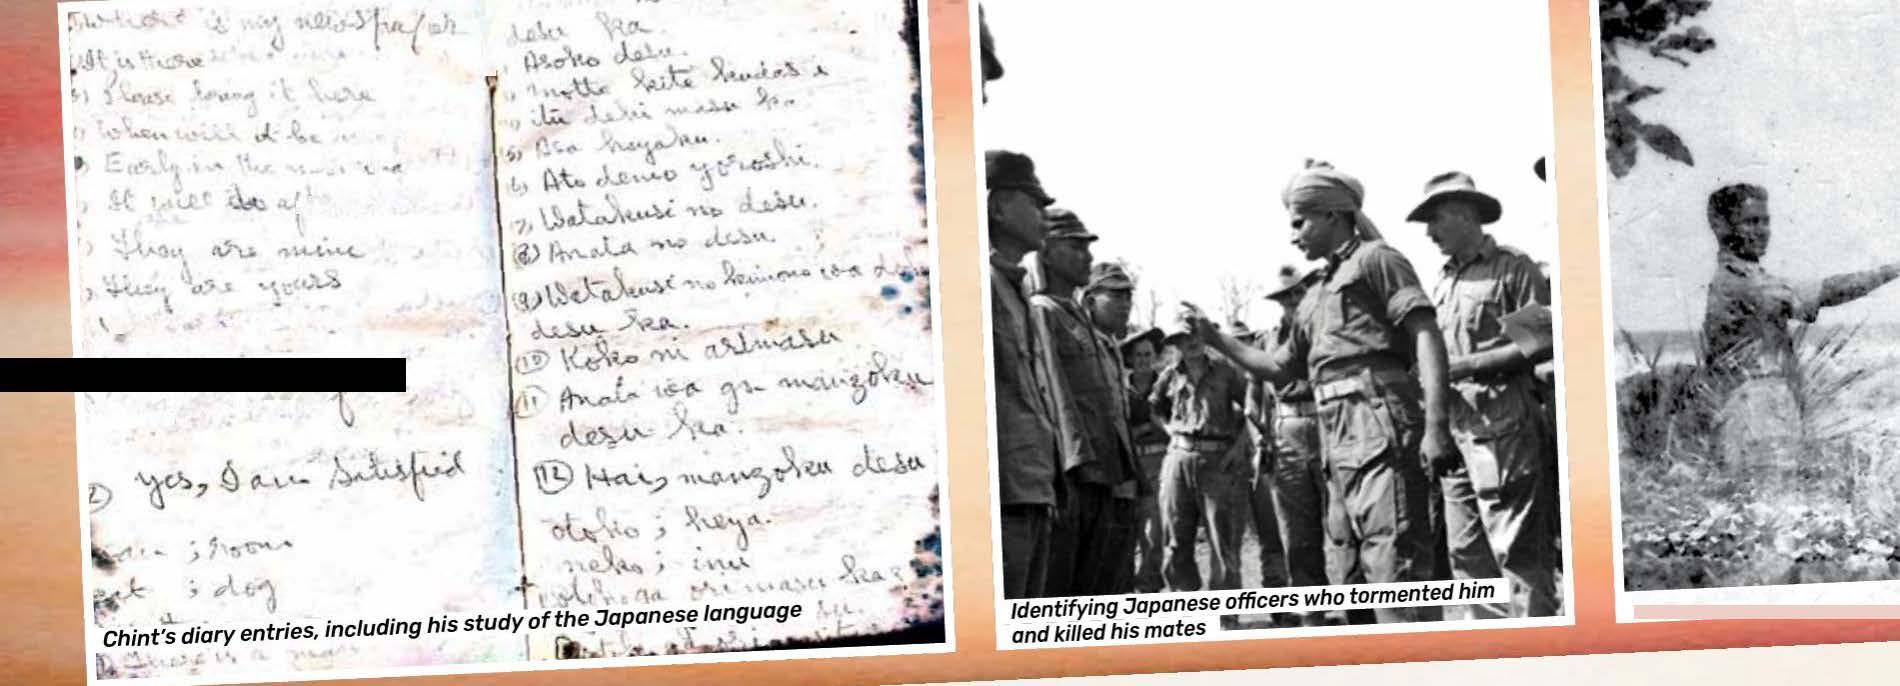 Where is my newspaper
It is there
3) Please bring it here
When will it be
Early in the
It will do
They are mine
They are yours
2) yes, I am Satisfied
; room
; dog
There is a
desu ka.
Asoko desu.
motte kite kudasi
itu deki masu ka
5) Asa hayaku.
6) Ato demo yoroshi.
7) Watakusi no desu.
(8) Anata no desu.
(9) Watakusi no kimono wa
desu ka.
(10) Koko ni arimasu
(11) Anata wa go manzoku
desu ka.
(12) Hai, manzoku desu
otoko ; heya.
neko ; inu
ga orimasu ka?
Chint's diary entries, including his study of the Japanese language
Identifying Japanese officers who tormented him
and killed his mates